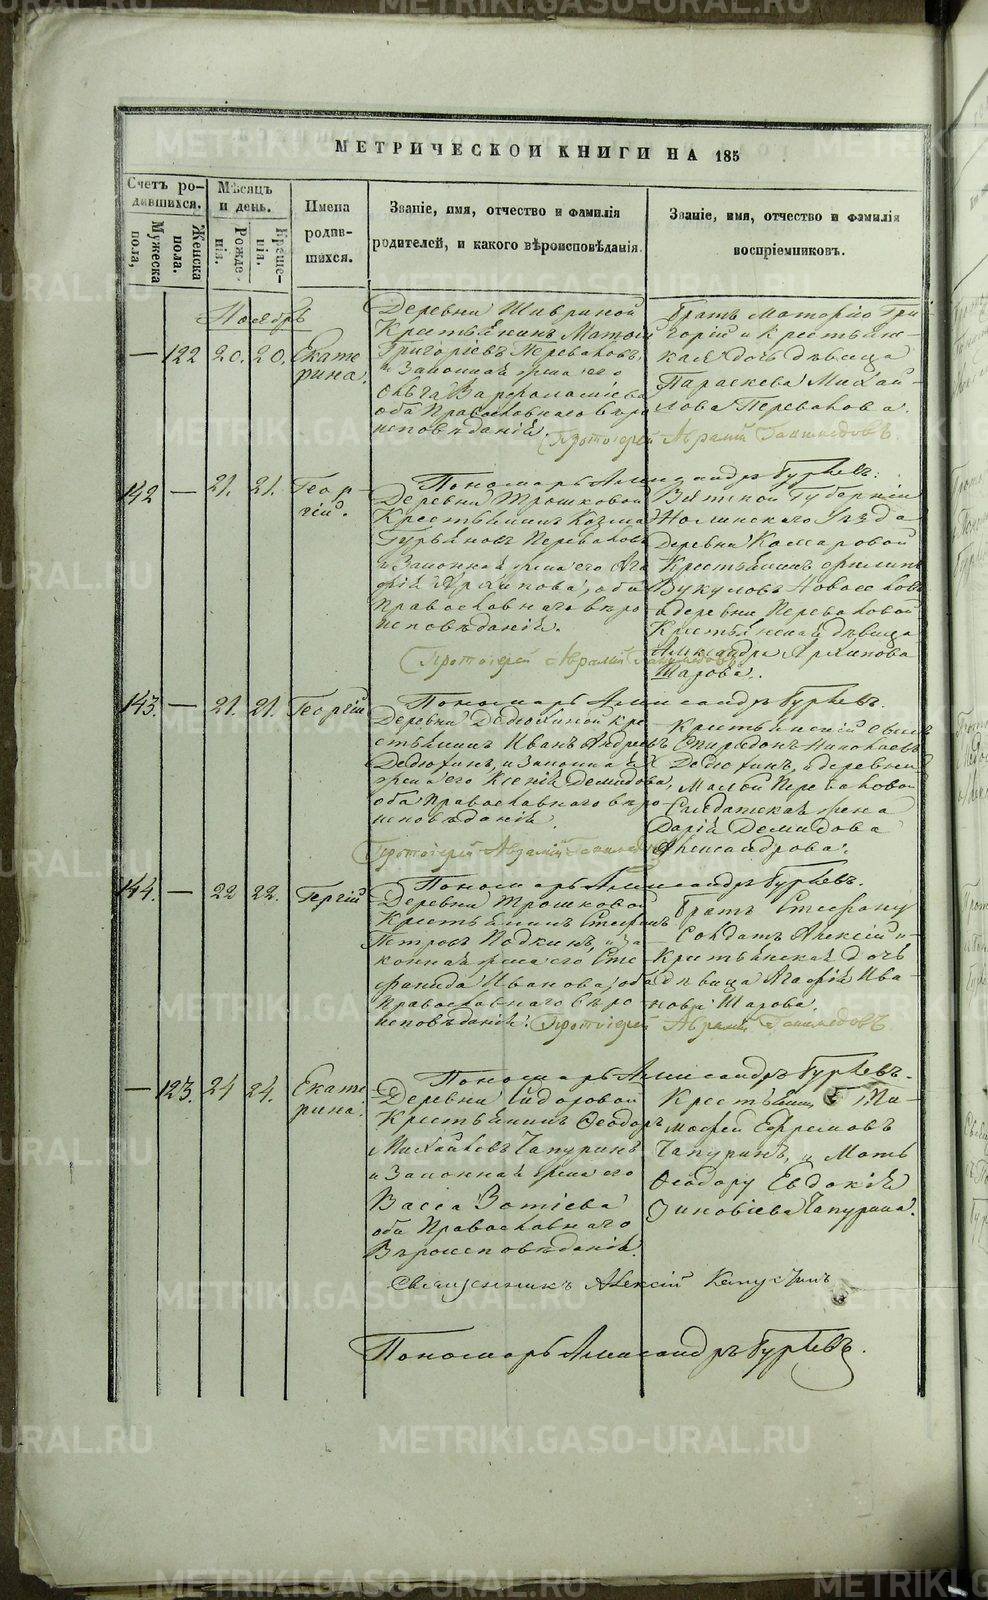 МЕТРИЧЕСКОЙ КНИГИ НА 185
Счетъ ро-
дившихся.
Мужеска
пола,
Женска
пола.
Мѣсяцъ
и день.
Рожде-
нія.
Креще-
нія.
Имена
родив-
шихся.
Званіе, имя, отчество и фамилія
родителей, и какого вѣроисповѣданія.
Званіе, имя, отчество и фамилія
воспріемниковъ.
Ноябрь
— 122 20. 20. Екате
рина.
Деревни
Крестьянинъ
Григоріевъ Переваловъ,
и Законная жена его
Ольга Варфоломеева
оба Православнаго вѣро
исповѣданія.
Братъ Григорій и Крестьянс-
кая дочь дѣвица
Параскева Михай-
лова Перевалова.
Протоіерей Аврамій
Пономарь Александръ Гурьевъ.
142 — 21. 21. Геор-
гій.
Деревни Трошковой
Крестьянинъ Козма
Гурьяновъ Переваловъ
и Законная жена его
оба
Православнаго вѣро
исповѣданія.
Вятской Губерніи
Нолинскаго Уѣзда
Деревни Комаровой
Крестьянинъ Филипъ
Вукуловъ
и деревни Переваловой
Крестьянская дѣвица
Александра Архипова
Шарова.
Протоіерей Аврамій
Пономарь Александръ Гурьевъ.
143. — 21. 21. Георгій
Деревни Дедюхиной кре
стьянинъ Иванъ Андреевъ
Дедюхинъ, и Законная
жена его Ксенія Демидова,
оба Православнаго вѣро
исповѣданія.
Крестьянскій сынъ
Спиридонъ Николаевъ
Дедюхинъ, и деревни
Малой Переваловой
Солдатская жена
Дарія Демидова
Александрова.
Протоіерей Аврамій
Пономарь Александръ Гурьевъ.
144. — 22 22. Гергій
Деревни Трошковой
Крестьянинъ Стефанъ
Петровъ и За
конная жена его Сте
фанида Иванова, оба
Православнаго вѣро
исповѣданія.
Братъ Стефану
Солдатъ Алексій и
Крестьянская дочь
дѣвица Агафія Ива
нова Шарова.
Протоіерей Аврамій
Пономарь Александръ Гурьевъ.
— 123. 24 24. Екате
рина.
Деревни Сидоровой
Крестьянинъ Ѳеодоръ
Михайловъ Чапуринъ
и Законная жена его
Васса Зотіева
оба Православнаго
Вѣроисповѣданія.
Крестьянинъ Ти-
мофей Ефремовъ
Чапуринъ, и Мать
Ѳеодору Евдокія
Зиновіева Чапурина.
Священникъ Алексій Капустинъ
Пономарь Александръ Гурьевъ.
METRIKI.GASO-URAL.RU